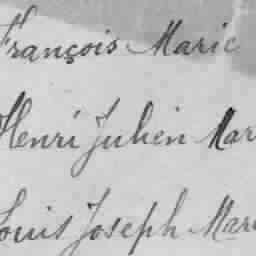 François Marie
Henri Julien Mar
Louis Joseph Mari